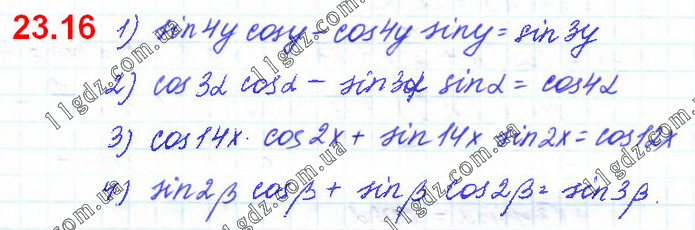 23.16 1) sin4y cosy - cos4y siny = sin3y
2) cos3α cosα - sin3α sinα = cos4α
3) cos14x · cos2x + sin14x sin2x = cos12x
4) sin2β cosβ + sinβ cos2β = sin3β.
11gdz.com 11gdz.com 11gdz.com 11gdz.com 11gdz.com 11gdz.com